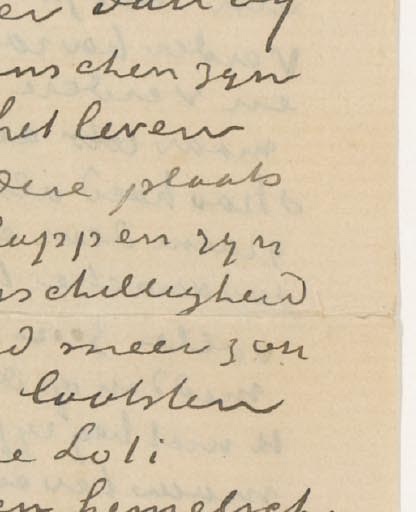 er dan zy
nschen zyn
het leven
dere plaats
happen zyn
schilligheid
d meer zon
laatsten
e Loti
en hemelsch